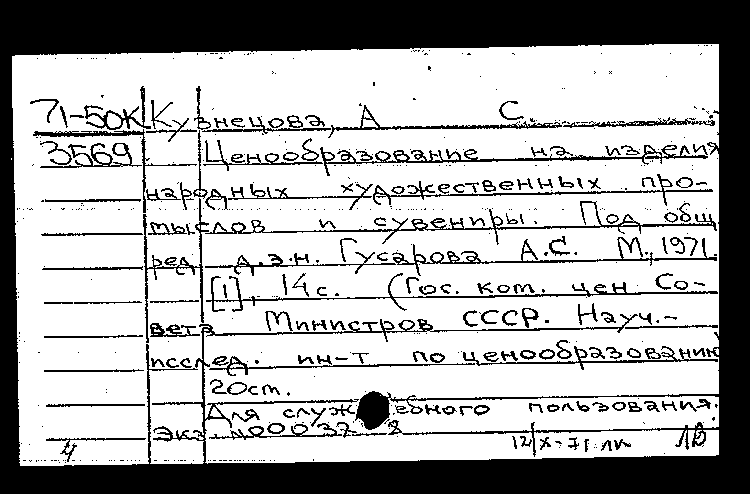 71-50К Кузнецова, А С.
3569 Ценообразование на изделия
народных художественных про-
мыслов и сувениры. Под общ
ред д.э.н. Гусарова А.С. М., 1971.
[1], 14 с. (Гос. ком. цен Со-
вета Министров СССР. Науч.-
исслед. ин-т по ценообразованию
20см.
Для служебного пользования.
Экз. N000
4 12/X-71 ЛВ